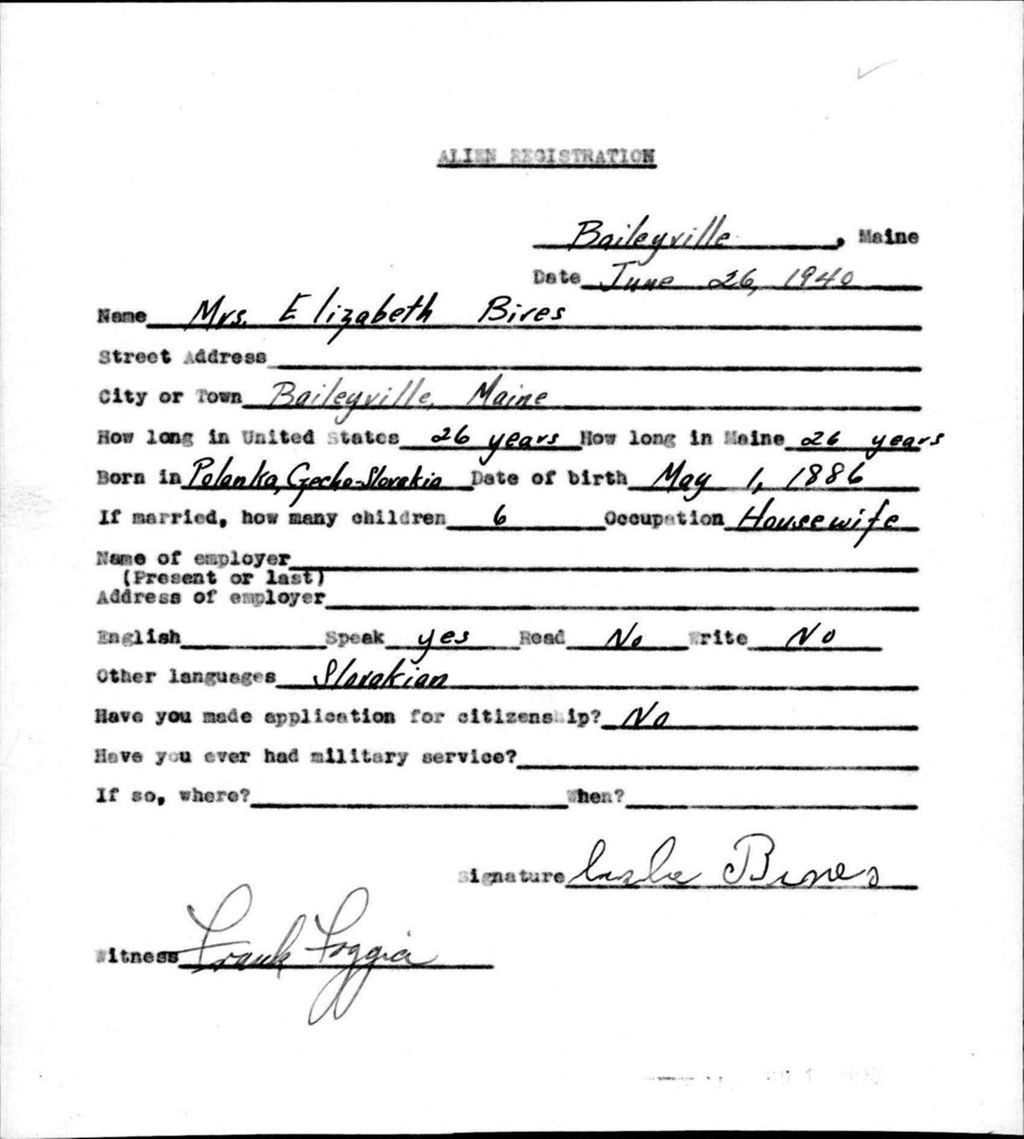 ALIEN REGISTRATION
Baileyville, Maine
Date June 26, 1940
Name Mrs. Elizabeth Bires
Street Address
City or Town Baileyville, Maine
How long in United States 26 years How long in Maine 26 years
Born in Polanka, Czecho-Slovakia Date of birth May 1, 1886
If married, how many children 6 Occupation Housewife
Name of employer
(Present or last)
Address of employer
English Speak yes Read No Write No
Other languages Slovakian
Have you made application for citizenship? No
Have you ever had military service?
If so, where? When?
Signature Bires
Witness Frank Foggia